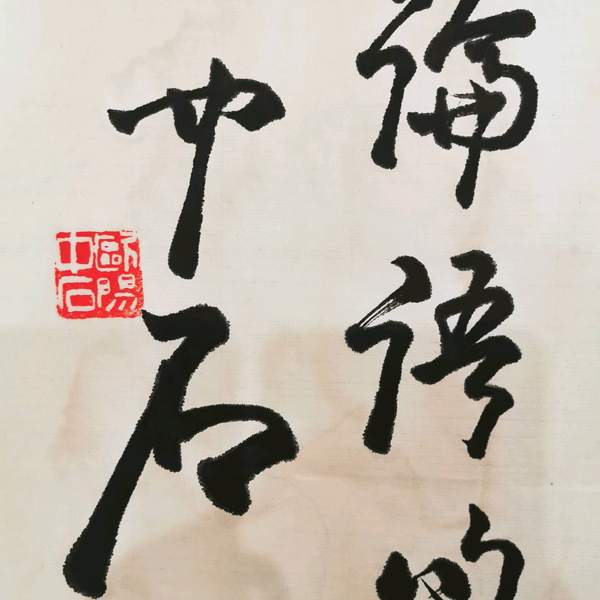 論語的
中石
歐陽中石